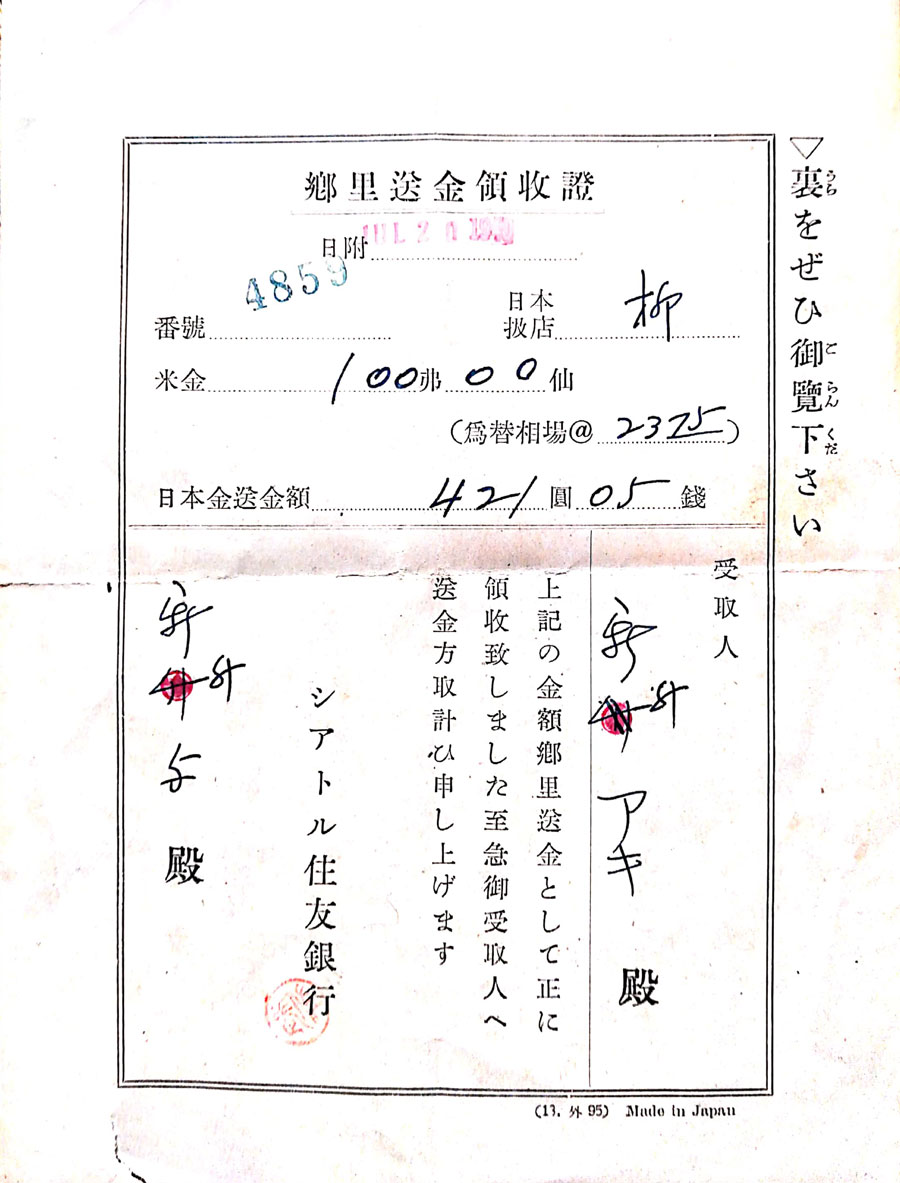 鄕里送金領收證
日附 JUL 2
4859
番號
日本扱店 柳
米金 100弗00仙
(爲替相場@ 2375)
日本金送金額 421圓05錢
▽裏をぜひ御覽下さい
うら
ごらんくだ
受取人
新井 アキ 殿
上記の金額鄕里送金として正に
領收致しました至急御受取人へ
送金方取計ひ申し上げます
シアトル住友銀行
新井 殿
(13. 外 95) Made in Japan